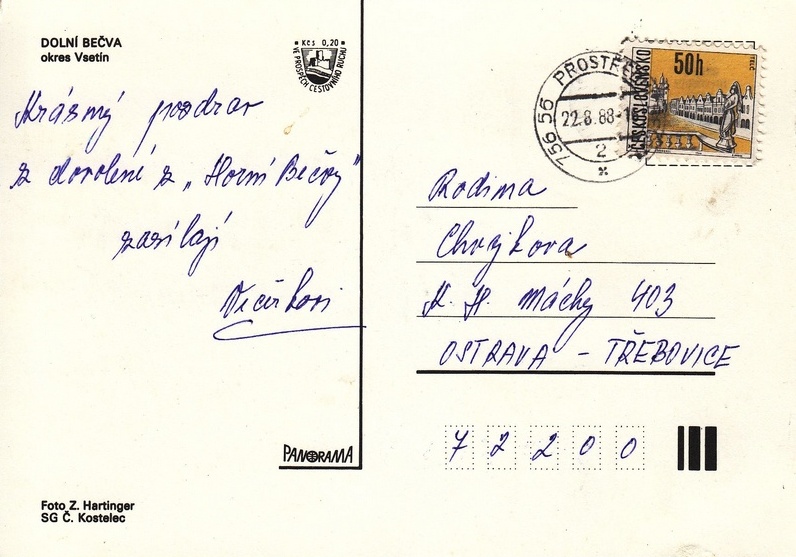 DOLNÍ BEČVA
okres Vsetín
Kčs 0,20
VE PROSPĚCH CESTOVNÍHO RUCHU
Krásný pozdrav
z dovolené z „Horní Bečvy"
zasílají
Večírkovi
PANORAMA
Foto Z. Hartinger
SG Č. Kostelec
756 56 PROSTŘE
22.8.88-1
2
50h
ČESKOSLOVENSKO
TELČ
Rodina
Chvjkova
K. H. Máchy 403
OSTRAVA - TŘEBOVICE
72200